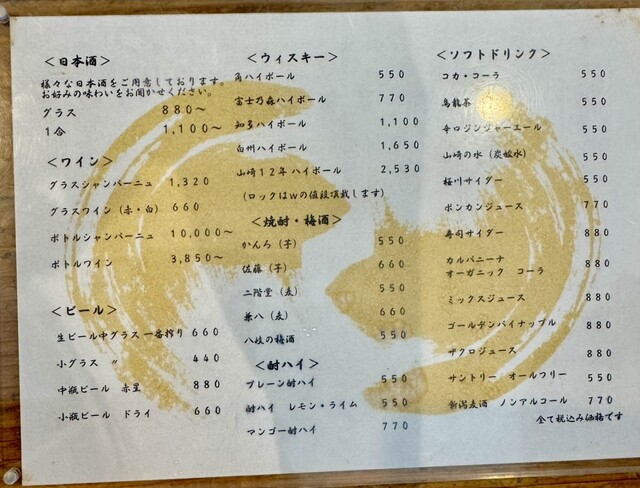 ＜日本酒＞
様々な日本酒をご用意しております。
お好みの味わいをお聞かせください。
グラス 880～
1合 1,100～
＜ワイン＞
グラスシャンパーニュ 1,320
グラスワイン（赤・白） 660
ボトルシャンパーニュ 10,000～
ボトルワイン 3,850～
＜ビール＞
生ビール中グラス 一番搾り 660
小グラス 〃 440
中瓶ビール 赤星 880
小瓶ビール ドライ 660
＜ウィスキー＞
角ハイボール 550
富士乃森ハイボール 770
知多ハイボール 1,100
白州ハイボール 1,650
山崎12年ハイボール 2,530
（ロックはwの値段頂戴します）
＜焼酎・梅酒＞
かんろ（芋） 550
佐藤（芋） 660
二階堂（麦） 550
兼八（麦） 660
八岐の梅酒 550
＜酎ハイ＞
プレーン酎ハイ 550
酎ハイ レモン・ライム 550
マンゴー酎ハイ 770
＜ソフトドリンク＞
コカ・コーラ 550
烏龍茶 550
辛口ジンジャーエール 550
山崎の水（炭酸水） 550
桜川サイダー 550
ポンカンジュース 770
寿司サイダー 880
カルバニーナ
オーガニック コーラ 880
ミックスジュース 880
ゴールデンパイナップル 880
ザクロジュース 880
サントリー オールフリー 550
新潟麦酒 ノンアルコール 770
全て税込み価格です